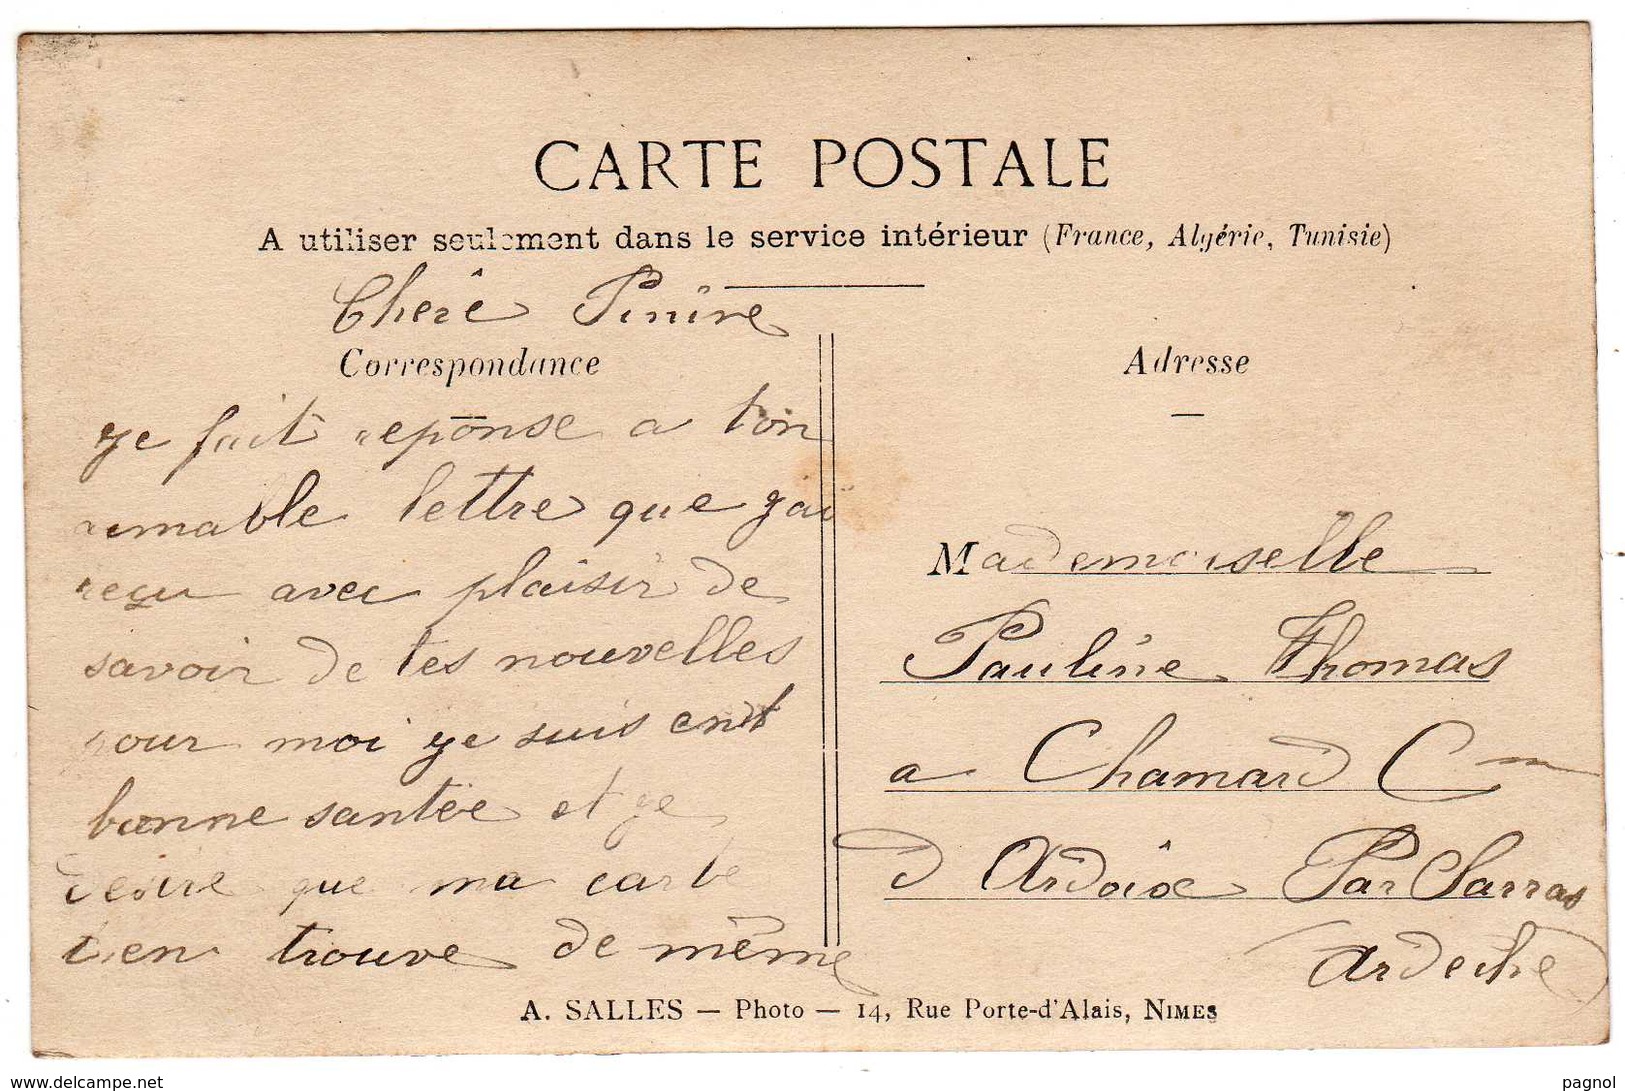 CARTE POSTALE
A utiliser seulement dans le service intérieur (France, Algérie, Tunisie)
Cherê
Correspondance
ge fait reponse a ton
aimable lettre que gai
reçu avec plaisir de
savoir de tes nouvelles
pour moi ge suis
bonne santée et ge
desire que ma carte
t'en trouve de même
Adresse
Mademoiselle
Pauline Thomas
a Chamard Cm
d Ardoix Par Sarras
Ardeche
A. SALLES — Photo — 14, Rue Porte-d'Alais, NIMES
www.delcampe.net
pagnol